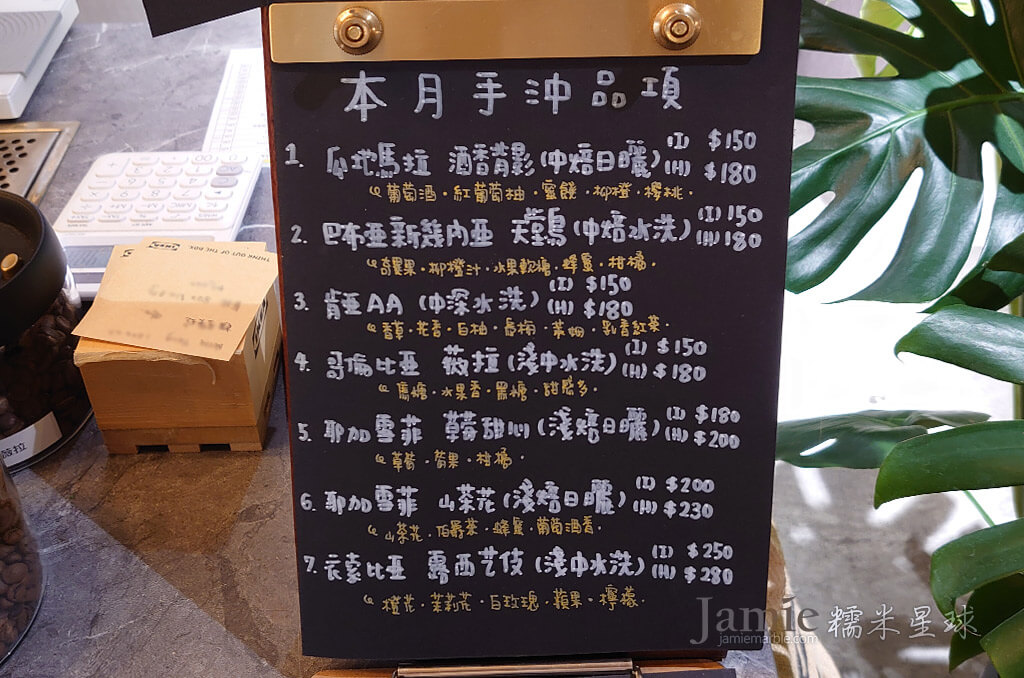 本月手沖品項
1. 瓜地馬拉 酒香背影(中焙日曬) (I) $150
(H) $180
葡萄酒・紅葡萄柚・蜜餞・柳橙・櫻桃
2. 巴布亞新幾內亞 天堂鳥(中焙水洗) (I) 150
(H) 180
奇異果・柳橙汁・水果軟糖・蜂蜜・柑橘
3. 肯亞AA (中深水洗) (I) $150
(H) $180
香草・花香・白柚・烏梅・萊姆・果香紅茶
4. 哥倫比亞 薇拉(淺中水洗) (I) $150
(H) $180
焦糖・水果香・黑糖・甜感多
5. 耶加雪菲 草莓甜心(淺焙日曬) (I) $180
(H) $200
草莓・莓果・柑橘
6. 耶加雪菲 山茶花(淺焙日曬) (I) $200
(H) $230
山茶花・伯爵茶・蜂蜜・葡萄酒香
7. 衣索比亞 露西艺伎(淺中水洗) (I) $250
(H) $280
橙花・茉莉花・白玫瑰・蘋果・檸檬
THINK OUT OF THE BOX
薇拉
Jamie 糯米星球
jamiemarble.com